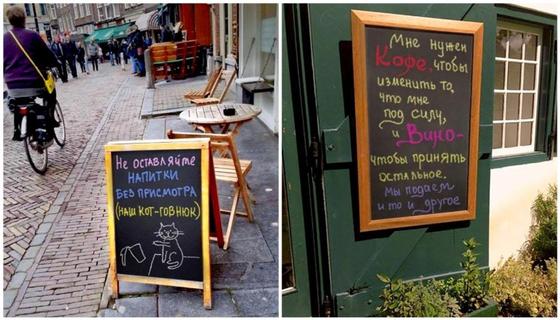 Не оставляйте
НАПИТКИ
БЕЗ ПРИСМОТРА
(НАШ КОТ-ГОВНЮК)
Мне нужен
Кофе, чтобы
изменить то,
что мне
под силу,
и Вино-
чтобы принять
остальное.
Мы подаем
и то и другое